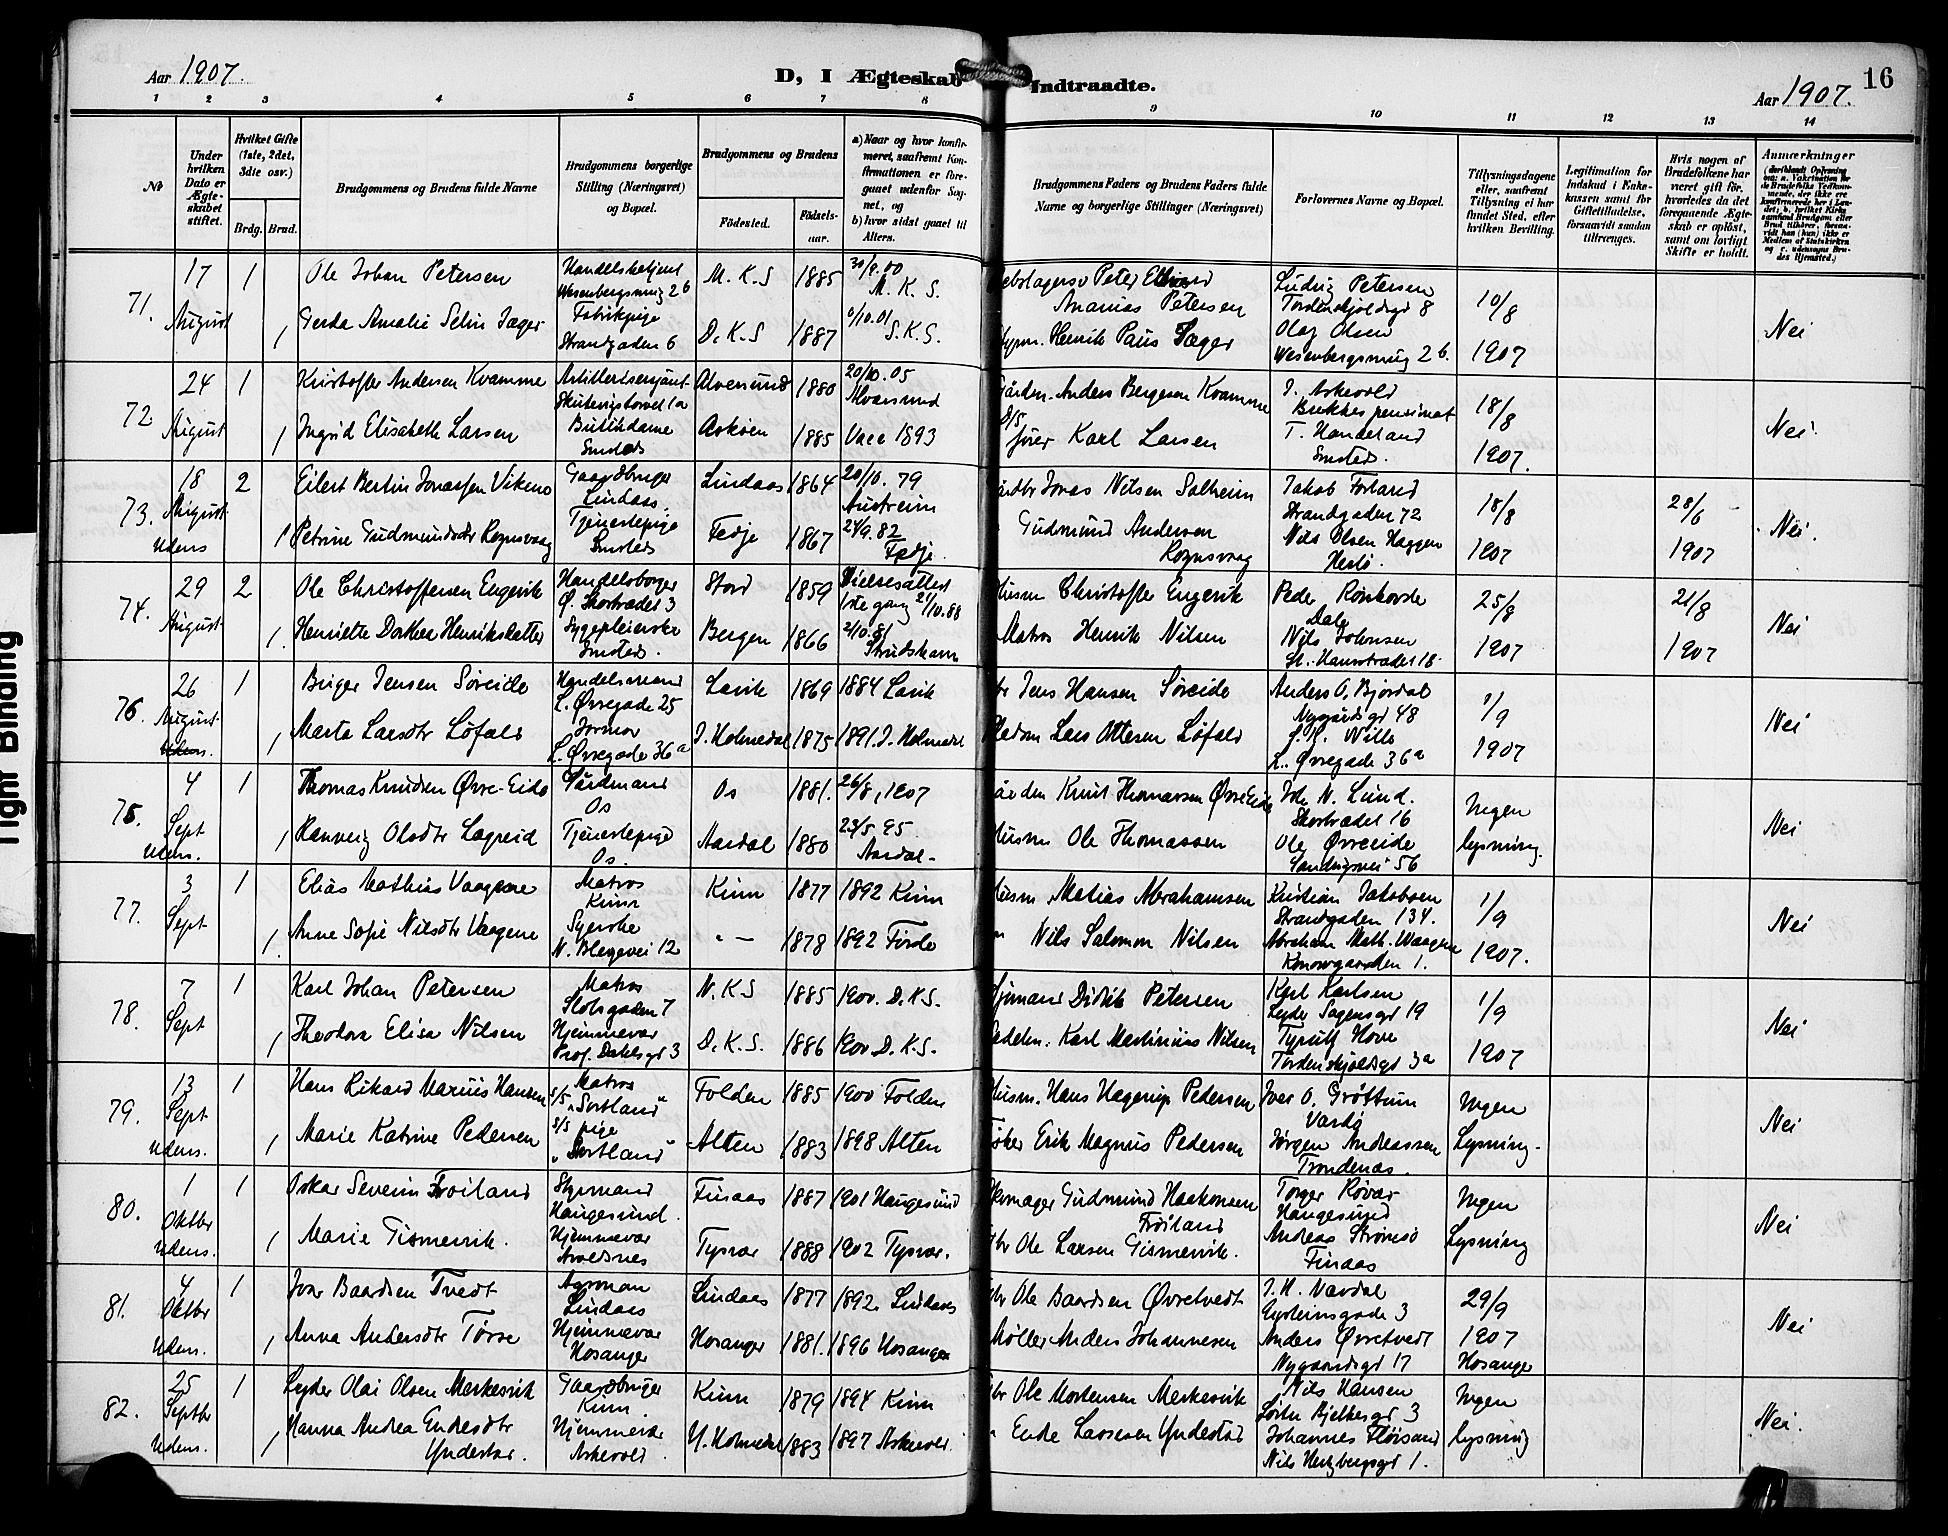 Aar 1907.
D, I Ægteskab
Indtraadte.
Aar 1907.
16
1 2 3 4 5 6 7 8 9 10 11 12 13 14
No
Under hvilken Dato er Ægteskabet stiftet.
Hvilket Gifte (1ste, 2det, 3die osv.)
Brdg. Brud.
Brudgommens og Brudens fulde Navne
Brudgommens borgerlige Stilling (Næringsvei) og Bopæl.
Brudgommens og Brudens
Födested.
Födsels-aar.
a) Naar og hvor konfirmeret, saafremt Konfirmationen er foregaaet udenfor Sognet, og
b) hvor sidst gaaet til Alters.
Brudgommens Faders og Brudens Faders fulde Navne og borgerlige Stillinger (Næringsvei)
Forlovernes Navne og Bopæl.
Tillysningsdagene eller, saafremt Tillysning ei har fundet Sted, efter hvilken Bevilling.
Legitimation for Indskud i Enkekassen samt for Giftetilladelse, forsaavidt saadan tiltrænges.
Hvis nogen af Brudefolkene har været gift før, hvorledes da det foregaaende Ægteskab er opløst, samt om lovligt Skifte er holdt.
Anmærkninger
71. 17 August 1 Ole Johan Petersen Handelsbetjent Wesenbergsmug 2b M.K.S 1885 30/9.00 M.K.S. Peter Edvard Ananias Petersen Ludvig Petersen Tordenskjoldsgt 8 10/8
1 Gerda Amalie Selin Jæger Fabrikpige Strandgaden 6 D.K.S 1887 /10.01 S.K.S. Henrik Paus Jæger Olaf Olsen Wesenbergsmug 2b. 1907 Nei
72. 24 August 1 Kristoffer Andersen Kvamme Artillerisersjant Skuteviktorvet 1a Alversund 1880 20/10.05 Alversund Anders Bergesen Kvamme J. Askevold Bukkes pensionat 18/8
1 Ingrid Elisabeth Larsen Butikdame Smsteds Askøen 1885 Vacc 1893 D/S fører Karl Larsen T. Handeland Smsteds. 1907. Nei
73. 18 August Udens 2 Eilert Bertin Jonassen Vikeno Gaardbruger Lindaas. Lindaas 1864 20/10.79 Austreim Jonas Nilsen Solheim Jakob Forland Strandgaden 72 18/8 28/6
1 Petrine Gudmundsdtr Rognsvaag Tjenestepige Smsteds Fedje 1867 24/9.82 Fedje. Gudmund Andersen Rognsvaag Nils Olsen Haggen Herlø. 1907 1907 Nei.
74. 29 August 2 Ole Christoffersen Engevik Handelsborger Ø. Skostrædet 3 Stord 1859 Vielsesattest 1ste gang 21/10.88 Husm Christoffer Engevik Peder Rønhovde Dale 25/8 21/8
1. Henriette Dorthea Henriksdatter Sygepleierske Smsteds. Bergen 1866 2/10.81 Matros Henrik Nilsen Nils Johnsen St. Hansstrædet 18 1907 1907 Nei
76. 26 August Udens. 1 Birger Jensen Søreide Handelsmand L. Øvregade 25 Lavik 1869 1884 Lavik Jens Hansen Søreide Anders O. Bjordal Nygårdsgt 48 1/9
1 Marta Larsdtr Løfald Jormor L. Øvregade 36a I. Holmedal 1875 1891 I. Holmedal Lars Ottesen Løfald Wille L. Øvregade 36a 1907 Nei
75. 4 Sept Udens. 1 Thomas Knudsen Øvre-Eide Gårdmand Os Os 1881. 26/8, 1907 Knut Thomassen Øvre Eide Joh. N. Lund. Skostrædet 16 Ingen
1 Rannveig Olsdtr Lægreid Tjenestepige Os. Aardal 1880 23/5 95 Aardal- Husm Ole Thomassen Ole Øvreeide Sandviksvei 56 lysning. Nei
77. 3 Sept 1 Elias Mathias Vaagene Matros Kinn Kinn 1877 1892 Kinn Husm Matias Abrahamsen Kristian Jakobsen Strandgaden 134. 1/9
1. Anne Sofie Nilsdtr Vaagene Syerske N. Blegevei 12 " — 1878 1892 Førde Nils Salomon Nilsen Abraham Math. Waagene Konowgaarden 1. 1907. Nei
78. 7 Sept 1 Karl Johan Petersen Matros Slotsgaden 7 N.K.S 1885 1900. D.K.S. Didrik Petersen Karl Karlsen Lyder Sagensgt 19 1/9
1 Theodora Elisa Nilsen Hjemmevær Prof. Dahlsgt 3 D.K.S. 1886 1900 D.K.S. Karl Martinius Nilsen Hove Tordenskjoldsgt 3a 1907 Nei
79. 13 Sept Udens. 1 Hans Rikard Marius Hansen Matros S/S "Sortland" Folden 1885 1900 Folden Husm. Hans Hagerup Pedersen Iver O. Grøttum Vardø Ingen
1 Marie Katrine Pedersen S/S pige "Sortland" Alten 1883 1898 Alten Erik Magnus Pedersen Jørgen Andreassen Trondenæs. Lysning. Nei
80. 1 Oktbr Udens. 1 Oskar Severin Frøiland Styrmand Haugesund. Finaas 1887 1901 Haugesund Skomager Gudmund Haakonsen Frøiland Torger Røvær Haugesund Ingen
1 Marie Gismervik. Hjemmevær Avaldsnes Tysvær 1888 1902 Tysvær. Ole Larsen Gismervik. Andreas Strømsø Finaas Lysning Nei
81. 4 Oktbr Udens. 1 Ivar Baardsen Tvedt Agronom Lindaas Lindaas 1877 1892 Lindaas Ole Baardsen Øvretvedt J. H. Vardal Eysteinsgade 3 29/9
1 Anna Andersdtr Tørse Hjemmevær Hosanger Hosanger 1881. 1896 Hosanger Møller Anders Johannesen Anders Øvretvedt Nygaardsgt 17 1907 Hosanger Nei
82. 25 Septbr Udens. 1 Lyder Olai Olsen Merkesvik Gaardbruger Kinn Kinn 1879 1894 Kinn Ole Mortensen Merkesvik Nils Hansen Bjelkesgt 3 Ingen
1 Hanna Andrea Endresdtr Yndestad. Hjemmevær Askevold. Y. Holmedal 1883 1897 Askevold. Ende Lassesen Yndestad Johannes Fløisand Nils Hertzbergsgt 1. lysning Nei.
Tight Binding